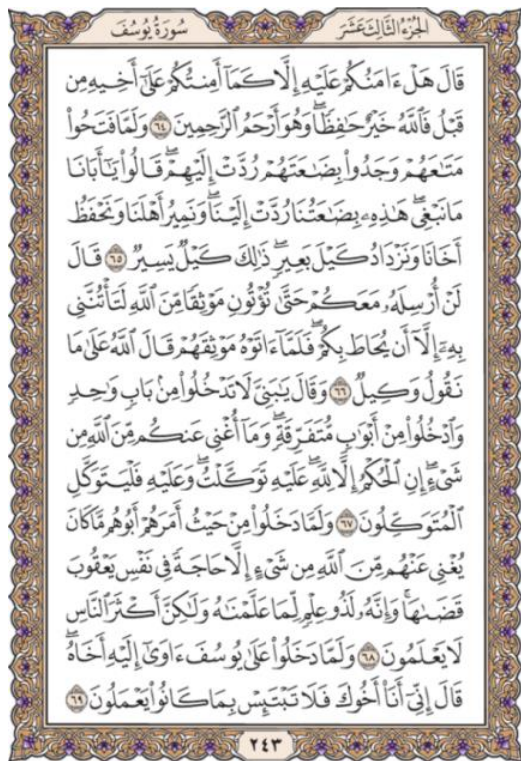 سُورَةُ يُوسُفَ
الجُزْءُ الثَّالِثَ عَشَرَ
قَالَ هَلْ ءَامَنُكُمْ عَلَيْهِ إِلَّا كَمَآ أَمِنتُكُمْ عَلَىٰٓ أَخِيهِ مِن
قَبْلُ فَٱللَّهُ خَيْرٌ حَٰفِظًاۖ وَهُوَ أَرْحَمُ ٱلرَّٰحِمِينَ ٦٤ وَلَمَّا فَتَحُوا۟
مَتَٰعَهُمْ وَجَدُوا۟ بِضَٰعَتَهُمْ رُدَّتْ إِلَيْهِمْۖ قَالُوا۟ يَٰٓأَبَانَا
مَا نَبْغِىۖ هَٰذِهِۦ بِضَٰعَتُنَا رُدَّتْ إِلَيْنَاۖ وَنَمِيرُ أَهْلَنَا وَنَحْفَظُ
أَخَانَا وَنَزْدَادُ كَيْلَ بَعِيرٍۖ ذَٰلِكَ كَيْلٌ يَسِيرٌ ٦٥ قَالَ
لَنْ أُرْسِلَهُۥ مَعَكُمْ حَتَّىٰ تُؤْتُونِ مَوْثِقًا مِّنَ ٱللَّهِ لَتَأْتُنَّنِى
بِهِۦٓ إِلَّآ أَن يُحَاطَ بِكُمْۖ فَلَمَّآ ءَاتَوْهُ مَوْثِقَهُمْ قَالَ ٱللَّهُ عَلَىٰ مَا
نَقُولُ وَكِيلٌ ٦٦ وَقَالَ يَٰبَنِىَّ لَا تَدْخُلُوا۟ مِنۢ بَابٍ وَٰحِدٍ
وَٱدْخُلُوا۟ مِنْ أَبْوَٰبٍ مُّتَفَرِّقَةٍۖ وَمَآ أُغْنِى عَنكُم مِّنَ ٱللَّهِ مِن
شَىْءٍۖ إِنِ ٱلْحُكْمُ إِلَّا لِلَّهِۖ عَلَيْهِ تَوَكَّلْتُۖ وَعَلَيْهِ فَلْيَتَوَكَّلِ
ٱلْمُتَوَكِّلُونَ ٦٧ وَلَمَّا دَخَلُوا۟ مِنْ حَيْثُ أَمَرَهُمْ أَبُوهُم مَّا كَانَ
يُغْنِى عَنْهُم مِّنَ ٱللَّهِ مِن شَىْءٍ إِلَّا حَاجَةً فِى نَفْسِ يَعْقُوبَ
قَضَىٰهَاۚ وَإِنَّهُۥ لَذُو عِلْمٍ لِّمَا عَلَّمْنَٰهُ وَلَٰكِنَّ أَكْثَرَ ٱلنَّاسِ
لَا يَعْلَمُونَ ٦٨ وَلَمَّا دَخَلُوا۟ عَلَىٰ يُوسُفَ ءَاوَىٰٓ إِلَيْهِ أَخَاهُۖ
قَالَ إِنِّىٓ أَنَا۠ أَخُوكَ فَلَا تَبْتَئِسْ بِمَا كَانُوا۟ يَعْمَلُونَ ٦٩
٢٤٣